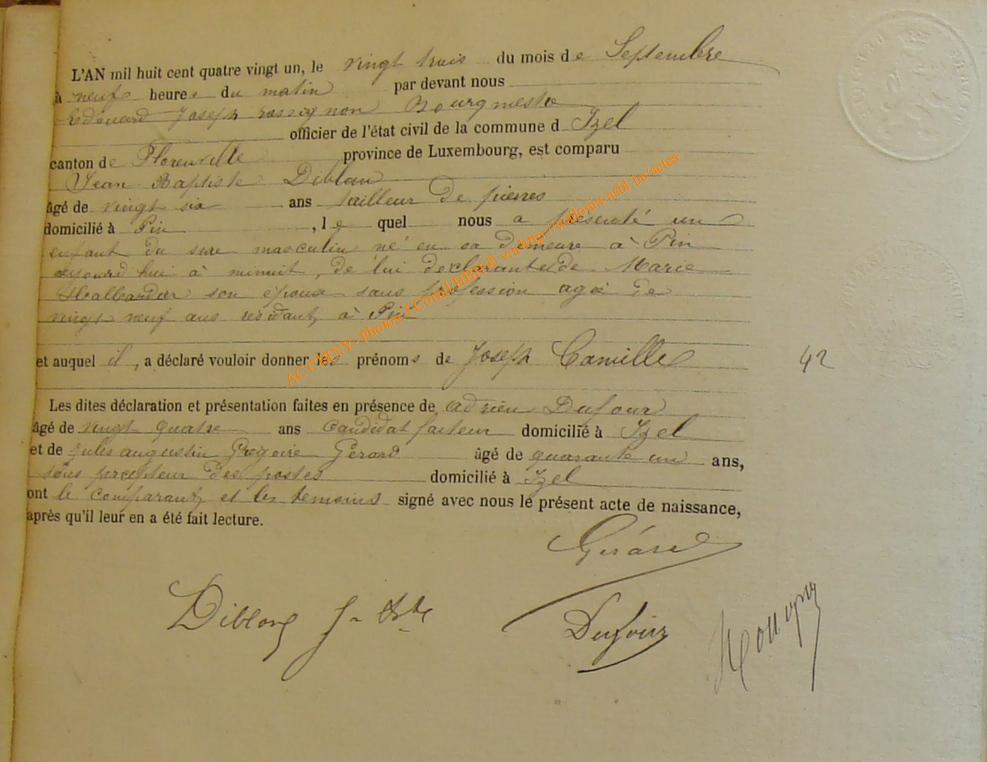 L'AN mil huit cent quatre vingt un, le vingt trois du mois de Septembre
à neuf heures du matin par devant nous
Edouard Joseph rossignon Bourgmestre
officier de l'état civil de la commune d Izel
canton de Florenville province de Luxembourg, est comparu
Jean Baptiste Diblon
âgé de vingt six ans tailleur de pierres
domicilié à Pin , le quel nous a présenté un
enfant du sexe masculin né en sa demeure à Pin
aujourd'hui à minuit, de lui déclarant et de Marie
son épouse sans profession agée de
vingt neuf ans résidant à Pin
et auquel il , a déclaré vouloir donner les prénoms de Joseph Camille
42
Les dites déclaration et présentation faites en présence de adrien Dufour
âgé de vingt quatre ans candidat facteur domicilié à Izel
et de jules augustin Gregoire Gérard âgé de quarante un ans,
sous percepteur des postes domicilié à Izel
ont le comparant et les temoins signé avec nous le présent acte de naissance,
après qu'il leur en a été fait lecture.
Gérard
Diblon J-Bte
Dufour